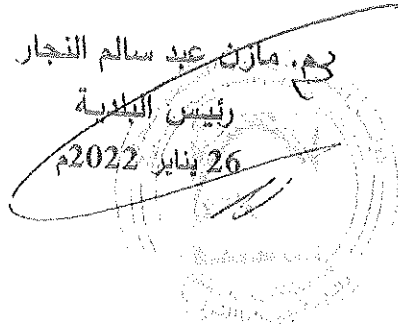 م. مازن عبد سالم النجار
رئيس البلدية
26 يناير 2022م